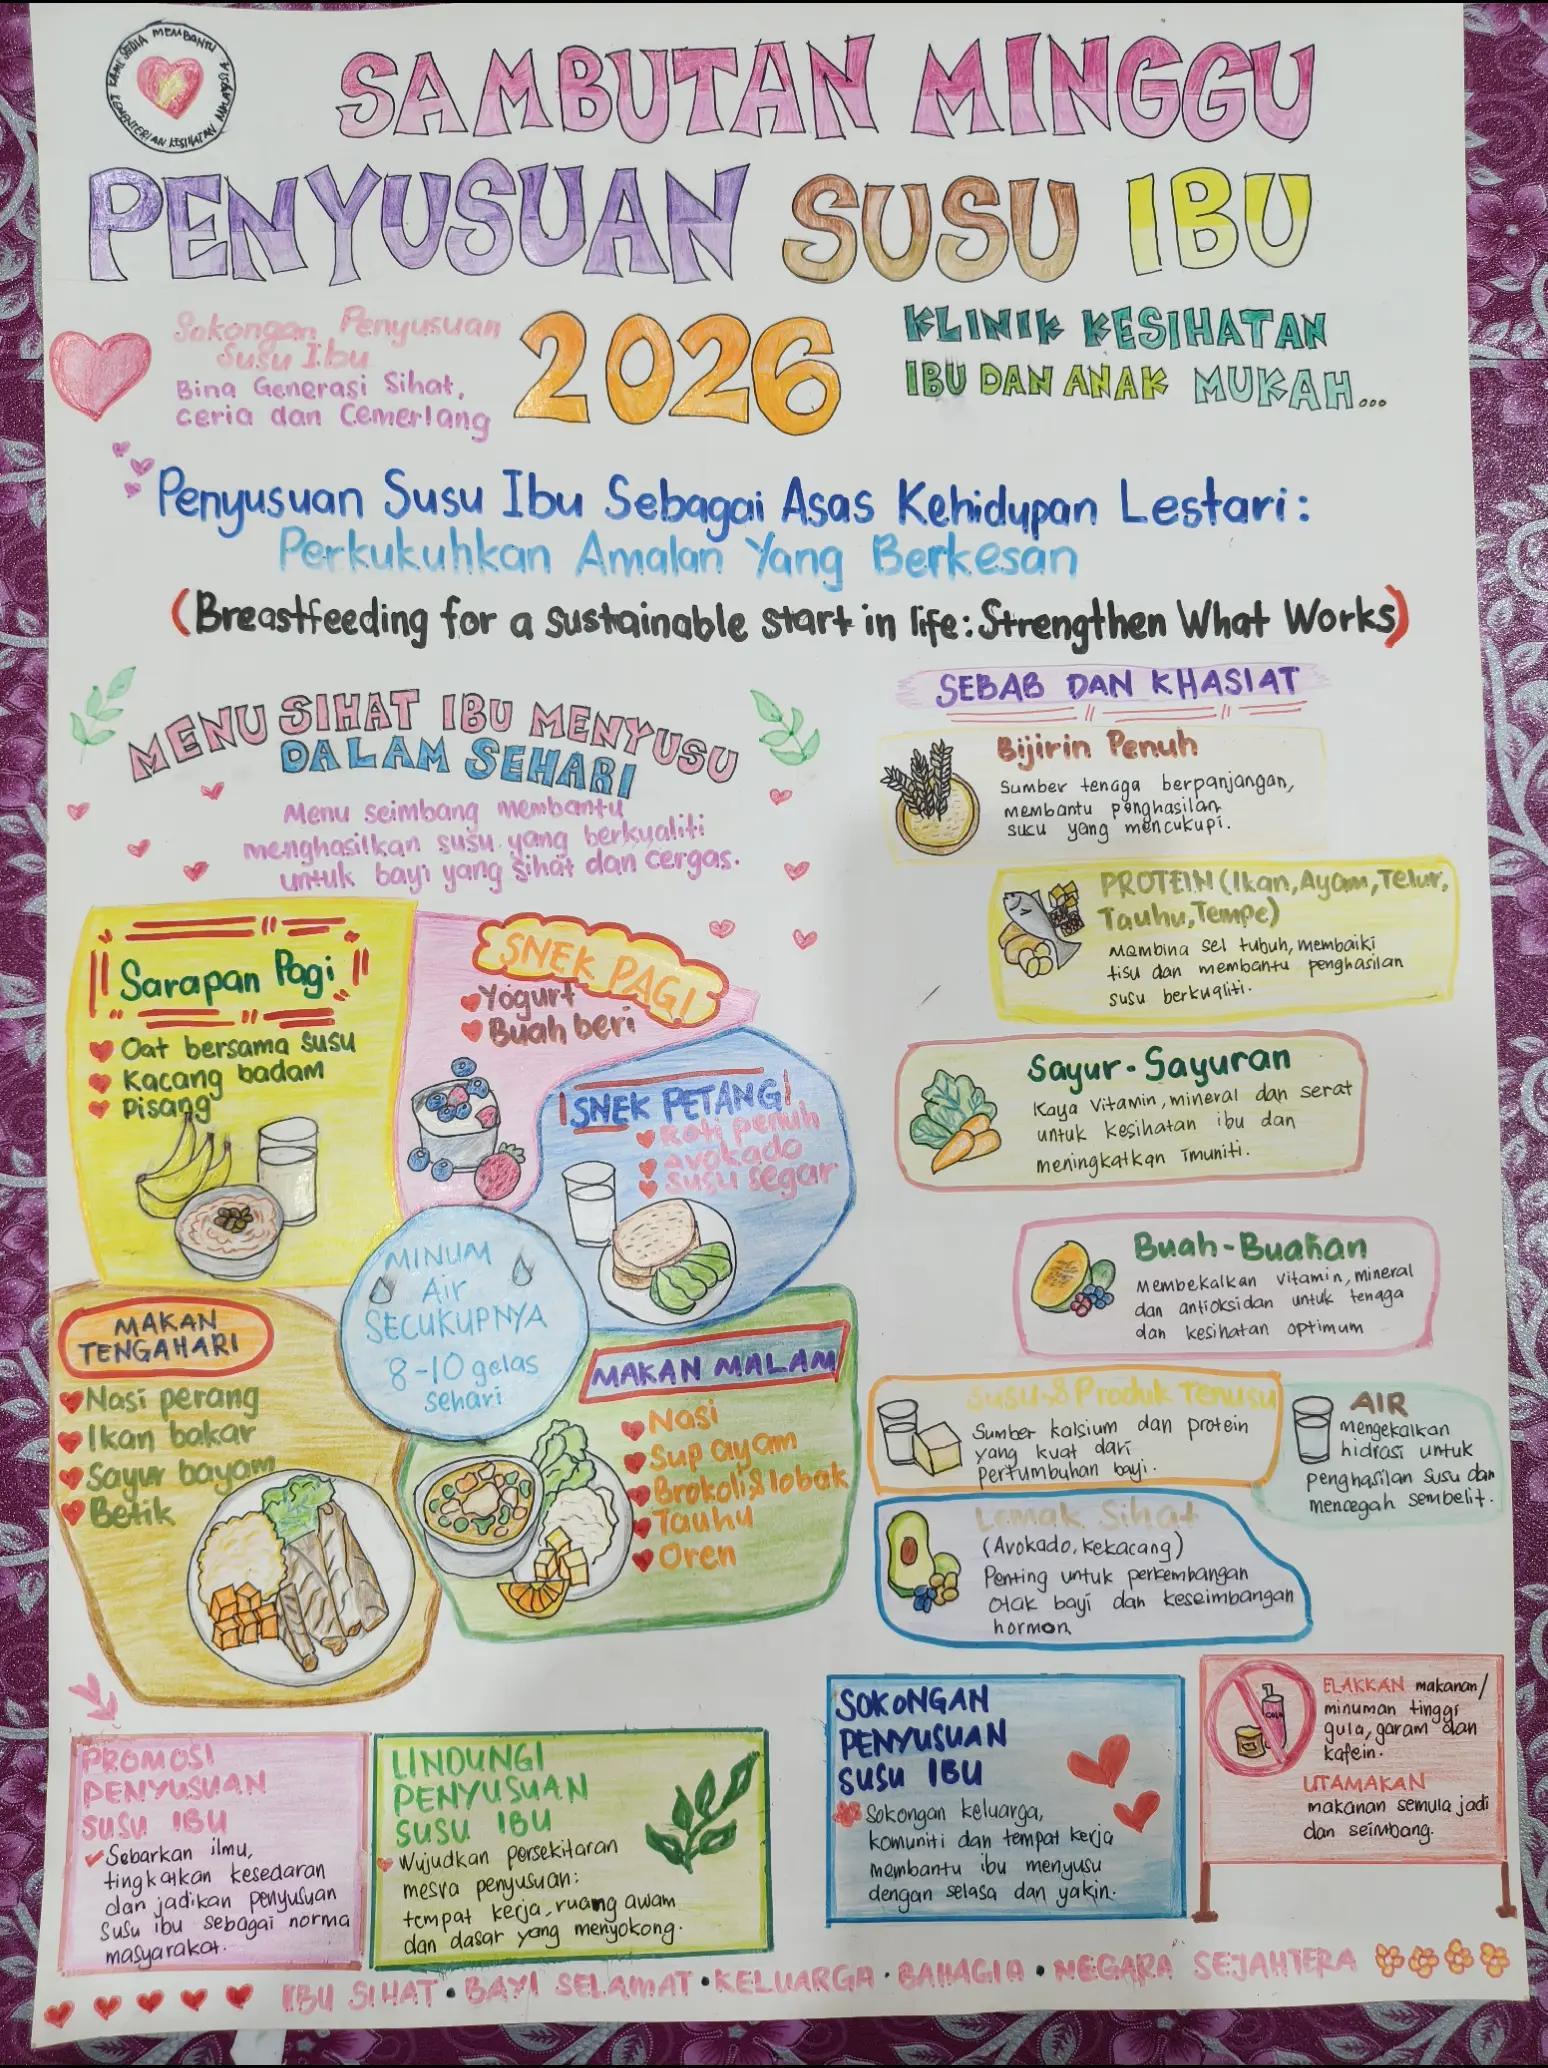 KAMI SEDIA MEMBANTU
KEMENTERIAN KESIHATAN MALAYSIA
SAMBUTAN MINGGU
PENYUSUAN SUSU IBU
2026
Sokongan Penyusuan
Susu Ibu
Bina Generasi Sihat,
ceria dan Cemerlang
KLINIK KESIHATAN
IBU DAN ANAK MUKAH...
Penyusuan Susu Ibu Sebagai Asas Kehidupan Lestari:
Perkukuhkan Amalan Yang Berkesan
(Breastfeeding for a sustainable start in life: Strengthen What Works)
MENU SIHAT IBU MENYUSU
DALAM SEHARI
Menu seimbang membantu
menghasilkan susu yang berkualiti
untuk bayi yang sihat dan cergas.
Sarapan Pagi
Oat bersama susu
Kacang badam
Pisang
SNEK PAGI
Yogurt
Buah beri
SNEK PETANG
Roti penuh
Avokado
Susu segar
MINUM
Air
SECUKUPNYA
8-10 gelas
sehari
MAKAN
TENGAHARI
Nasi perang
Ikan bakar
Sayur bayam
Betik
MAKAN MALAM
Nasi
Sup ayam
Brokoli & lobak
Tauhu
Oren
SEBAB DAN KHASIAT
Bijirin Penuh
Sumber tenaga berpanjangan,
membantu penghasilan
susu yang mencukupi.
PROTEIN (Ikan, Ayam, Telur,
Tauhu, Tempe)
Membina sel tubuh, membaiki
tisu dan membantu penghasilan
susu berkualiti.
Sayur-Sayuran
Kaya Vitamin, mineral dan serat
untuk kesihatan ibu dan
meningkatkan imuniti.
Buah-Buahan
Membekalkan vitamin, mineral
dan antioksidan untuk tenaga
dan kesihatan optimum
Susu & Produk Tenusu
Sumber kalsium dan protein
yang kuat dari
pertumbuhan bayi.
AIR
Mengekalkan
hidrasi untuk
penghasilan susu dan
mencegah sembelit.
Lemak Sihat
(Avokado, kekacang)
Penting untuk perkembangan
otak bayi dan keseimbangan
hormon
PROMOSI
PENYUSUAN
SUSU IBU
Sebarkan ilmu,
tingkatkan kesedaran
dan jadikan penyusuan
susu ibu sebagai norma
masyarakat.
LINDUNGI
PENYUSUAN
SUSU IBU
Wujudkan persekitaran
mesra penyusuan:
tempat kerja, ruang awam
dan dasar yang menyokong.
SOKONGAN
PENYUSUAN
SUSU IBU
Sokongan keluarga,
komuniti dan tempat kerja
membantu ibu menyusu
dengan selasa dan yakin.
ELAKKAN makanan/
minuman tinggi
gula, garam dan
kafein.
UTAMAKAN
makanan semula jadi
dan seimbang.
IBU SIHAT • BAYI SELAMAT • KELUARGA • BAHAGIA • NEGARA SEJAHTERA